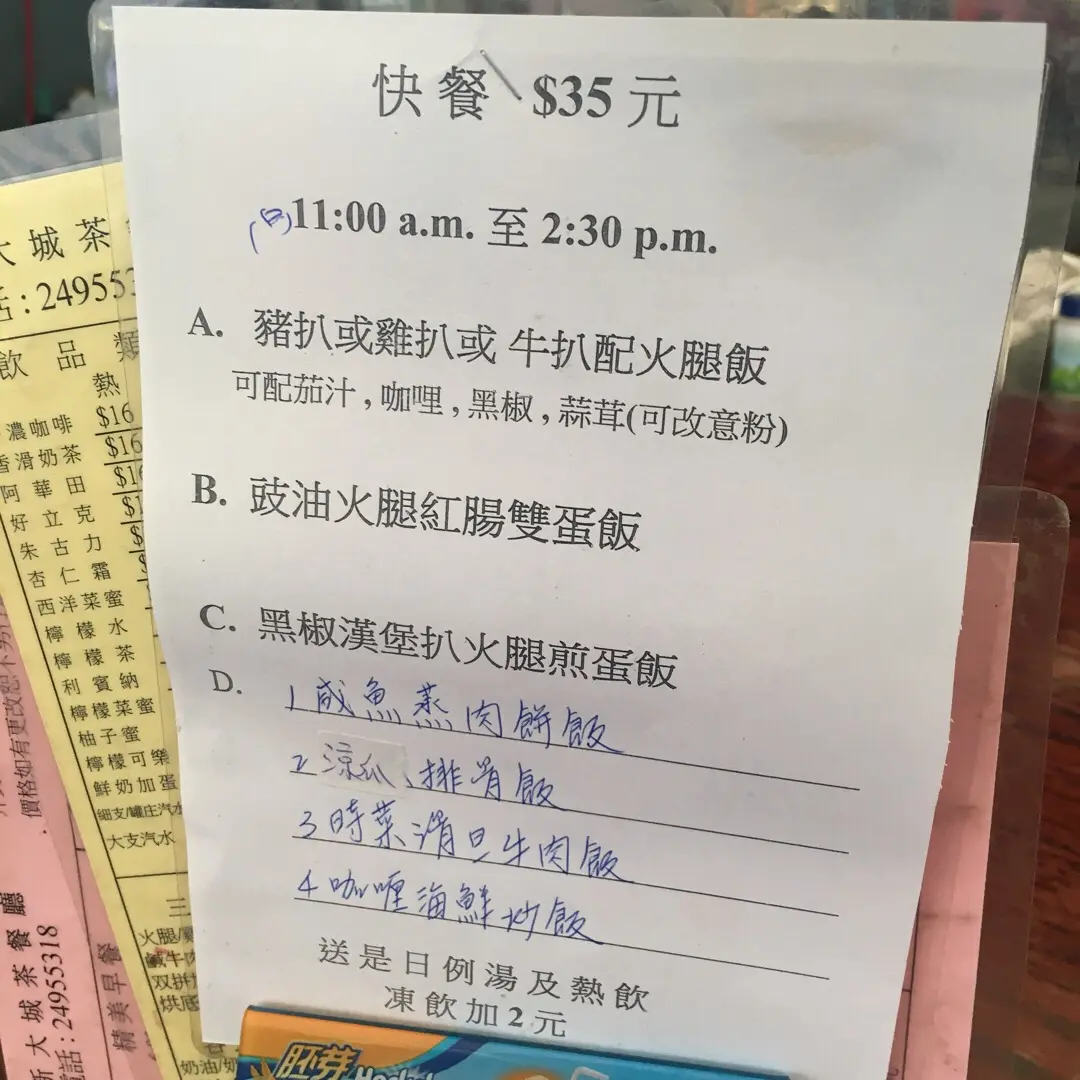 快餐 $35元
(日)11:00 a.m. 至 2:30 p.m.
A. 豬扒或雞扒或 牛扒配火腿飯
可配茄汁,咖哩,黑椒,蒜茸(可改意粉)
B. 豉油火腿紅腸雙蛋飯
C. 黑椒漢堡扒火腿煎蛋飯
D.
1 咸魚蒸肉餅飯
2 涼瓜、排骨飯
3 時菜滑旦牛肉飯
4 咖喱海鮮炒飯
送是日例湯及熱飲
凍飲加2元
大城茶
話:249553
飲品類
熱
濃咖啡 $16
香滑奶茶 $16
阿華田
好立克
朱古力
杏仁霜
西洋菜蜜
檸檬水
檸檬茶
利賓納
檸檬菜蜜
柚子蜜
檸檬可樂
鮮奶加蛋
細支/罐庄汽水
大支汽水
三
火腿/
鹹牛肉
双拼
烘底
奶油/奶
價格如有更改恕不另
新大城茶餐廳
電話:24955318
精美早餐
胚芽